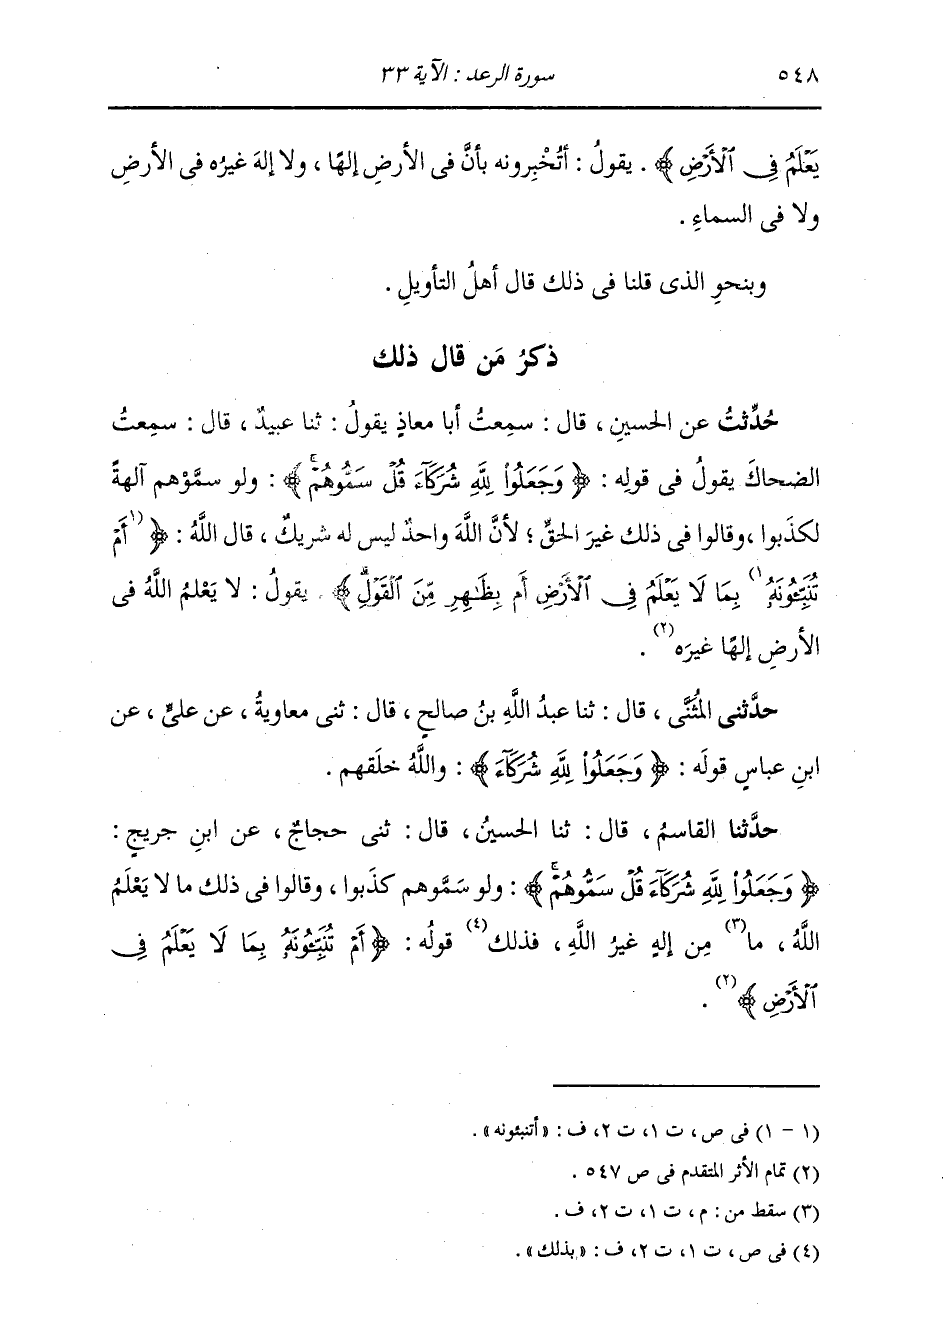 ٥٤٨ سورة الرعد : الآية ٣٣
يَعْلَمُ فِى ٱلْأَرْضِ ﴾ . يقولُ : أتُخْبِرونه بأنَّ فى الأرضِ إلهًا ، ولا إلهَ غيرُه فى الأرضِ
ولا فى السماءِ .
وبنحوِ الذى قلنا فى ذلك قال أهلُ التأويلِ .
ذكرُ مَن قال ذلك
حُدِّثتُ عن الحسينِ ، قال : سمِعتُ أبا معاذٍ يقولُ : ثنا عبيدٌ ، قال : سمِعتُ
الضحاكَ يقولُ فى قولِه : ﴿ وَجَعَلُوا۟ لِلَّهِ شُرَكَآءَ قُلْ سَمُّوهُمْۚ ﴾ : ولو سمَّوْهم آلهةً
لكذَبوا ،وقالوا فى ذلك غيرَ الحقِّ ؛ لأنَّ اللَّهَ واحدٌ ليس له شريكٌ ، قال اللَّهُ : ﴿ (١) أَمْ
تُنَبِّـُٔونَهُۥ (١) بِمَا لَا يَعْلَمُ فِى ٱلْأَرْضِ أَم بِظَـٰهِرٍ مِّنَ ٱلْقَوْلِۗ ﴾ . يقولُ : لا يَعْلمُ اللَّهُ فى
الأرضِ إلهًا غيرَه (٢) .
حدَّثنى المُثَنَّى ، قال : ثنا عبدُ اللَّهِ بنُ صالحٍ ، قال : ثنى معاويةُ ، عن علىٍّ ، عن
ابنِ عباسٍ قولَه : ﴿ وَجَعَلُوا۟ لِلَّهِ شُرَكَآءَ ﴾ : واللَّهُ خلَقهم .
حدَّثنا القاسمُ ، قال : ثنا الحسينُ ، قال : ثنى حجاجٌ ، عن ابنِ جريجٍ :
﴿ وَجَعَلُوا۟ لِلَّهِ شُرَكَآءَ قُلْ سَمُّوهُمْۚ ﴾ : ولو سَمَّوهم كذَبوا ، وقالوا فى ذلك ما لا يَعْلَمُ
اللَّهُ ، ما (٣) مِن إلهٍ غيرُ اللَّهِ ، فذلك (٤) قولُه : ﴿ أَمْ تُنَبِّـُٔونَهُۥ بِمَا لَا يَعْلَمُ فِى
ٱلْأَرْضِ ﴾ (٢) .
(١ - ١) فى ص، ت ١، ت ٢، ف : «أتنبئونه» .
(٢) تمام الأثر المتقدم فى ص ٥٤٧ .
(٣) سقط من : م ، ت ١، ت ٢، ف .
(٤) فى ص ، ت ١، ت ٢، ف : «بذلك» .